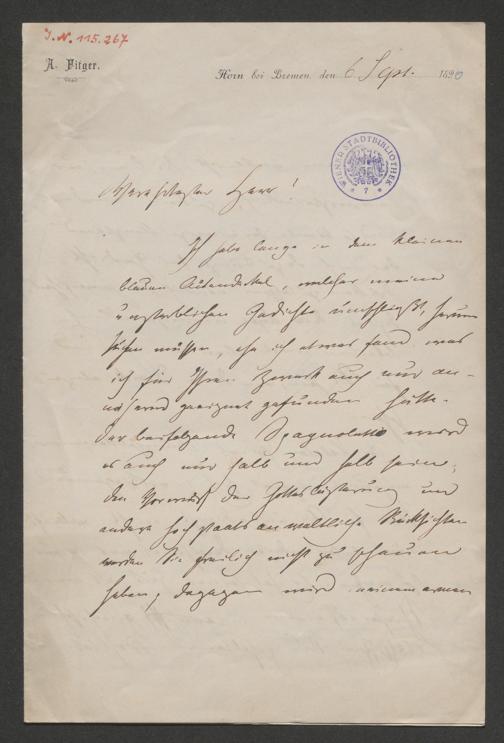 J. N. 115.267
A. Fitger.
Horn bei Bremen, den 6 Sept. 1890
WIENER STADTBIBLIOTHEK
7
Verehrtester Herr!
Ich habe lange in dem kleinen
blauen Actendeckel, welcher meine
unsterblichen Gedichte umschließt, herum
suchen müssen, ehe ich etwas fand was
ich für Ihren Zweck auch nur an-
nähernd geeignet gefunden hätte.
Der beifolgende Spagnoletto wird
es auch nur halb und halb sein;
den Vorwurf der Gotteslästerung und
andere hochstaatsanwaltliche Rücksichten
werden Sie freilich nicht zu scheuen
haben, dagegen wird meinem armen